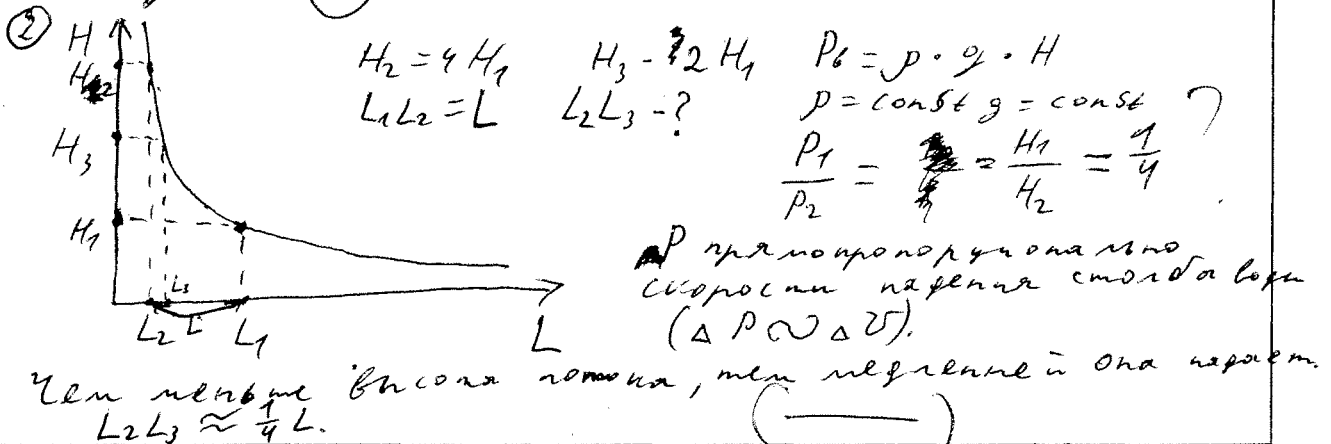 ② H
H₂ = 4H₁ H₃ - 2H₁ Pв = ρ · g · H
H₂
L₁L₂ = L L₂L₃ - ? ρ = const g = const ?
H₃
P₁/P₂ = = H₁/H₂ = 1/4
H₁
P прямопропорционально
скорости падения столба воды
L₃
(ΔP ~ Δv).
L₂ L L₁ L
Чем меньше высота потока, тем медленней она падает.
L₂L₃ ≈ 1/4 L.
(—)